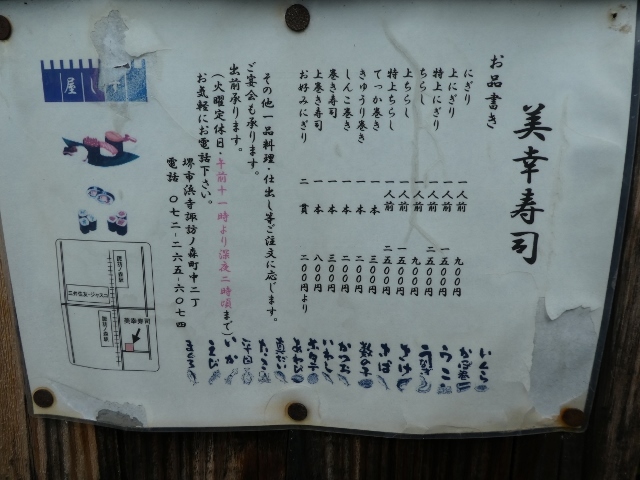 美幸寿司
お品書き
にぎり 一人前 九〇〇円
上にぎり 一人前 一五〇〇円
特上にぎり 一人前 二五〇〇円
ちらし 一人前 九〇〇円
上ちらし 一人前 一五〇〇円
特上ちらし 一人前 二五〇〇円
てっか巻き 一本 三〇〇円
きゅうり巻き 一本 二〇〇円
しんこ巻き 一本 二〇〇円
巻き寿司 一本 三〇〇円
上巻き寿司 一本 八〇〇円
お好みにぎり 二貫 二〇〇円より
その他一品料理・仕出し等ご注文に応じます。
ご宴会も承ります。
出前承ります。
(火曜定休日・午前十一時より深夜二時頃まで)
お気軽にお電話下さい。
堺市浜寺諏訪ノ森町中二丁
電話 〇七二-二六五-六〇七四
いくら
うに
うなぎ
さけ
さば
数の子
かつお
いわし
ホタテ
あわび
真だい
たこ
いか
えび
まぐろ
し屋
諏訪ノ森駅
三井住友・ジャスコ
諏訪ノ森駅
美幸寿司